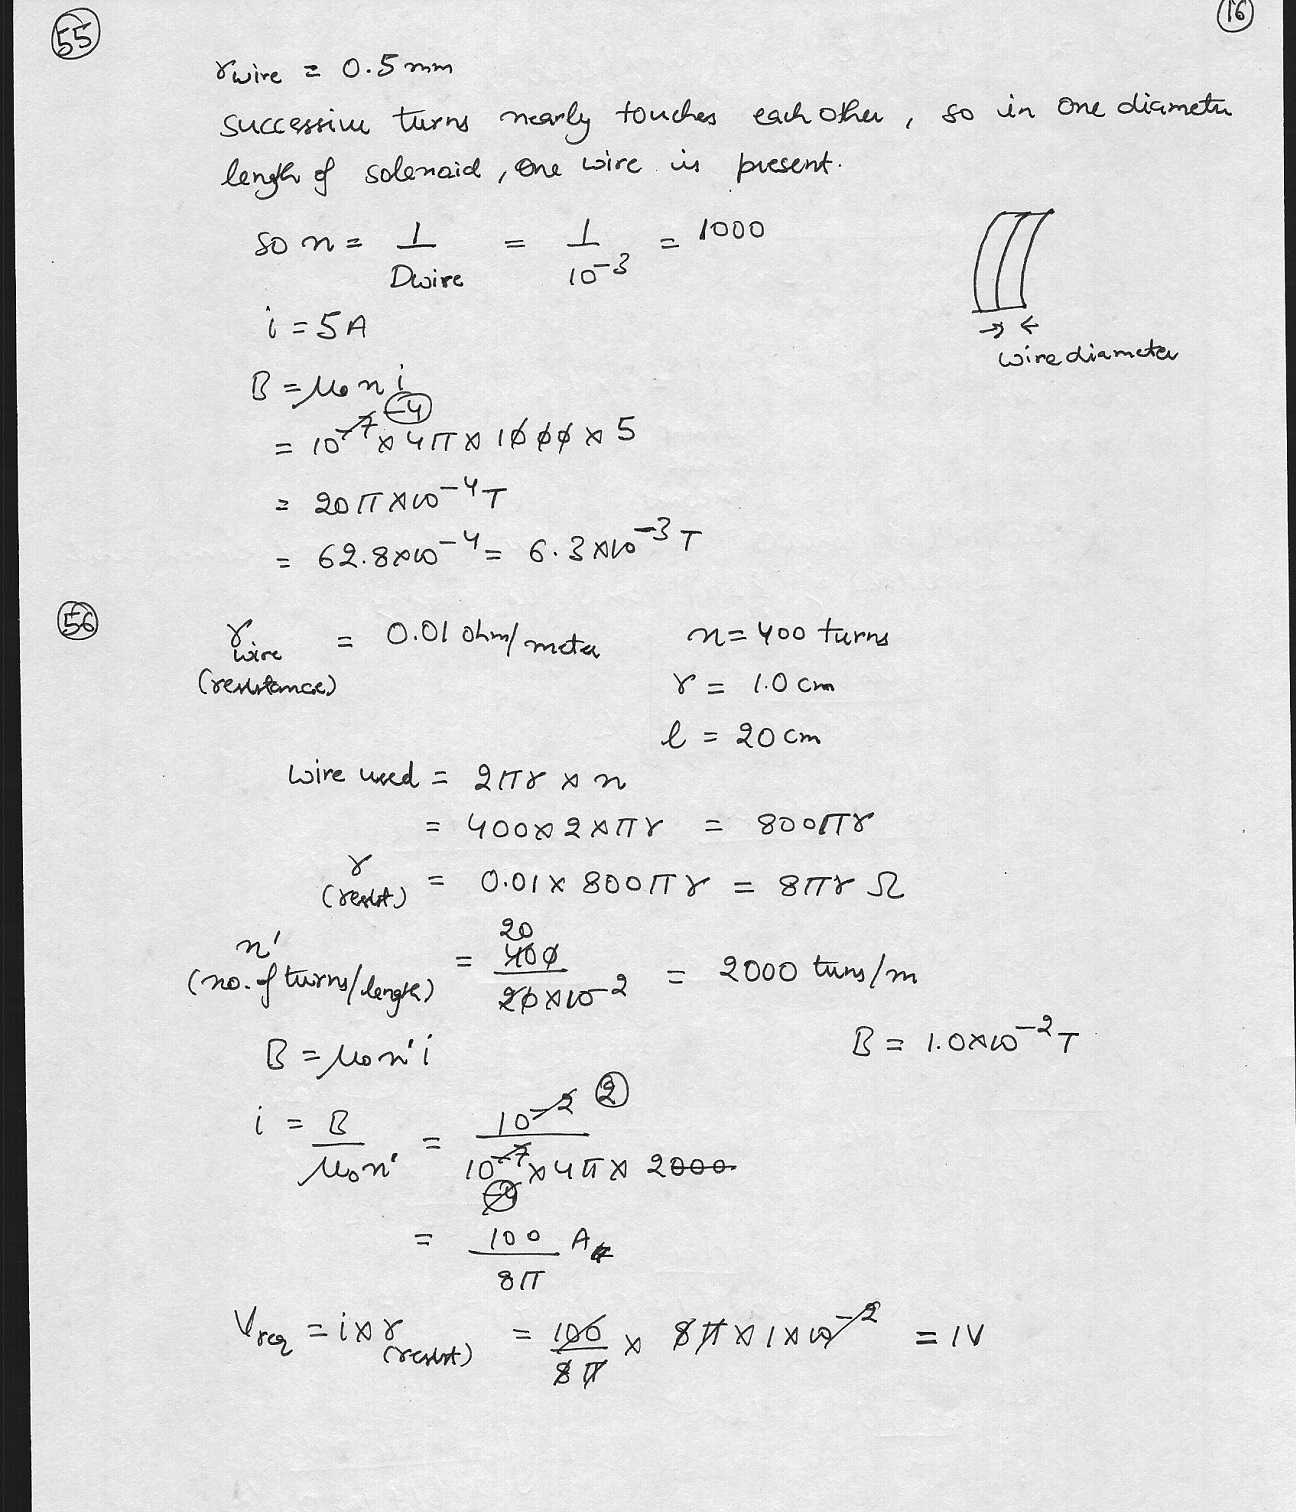 55
16
r wire = 0.5mm
successive turns nearly touches each other, so in one diameter
length of solenoid, one wire is present.
so n = 1/Dwire = 1/10^-3 = 1000
i = 5A
wire diameter
B = μ0 n i
-4
= 10^-7 × 4π × 1000 × 5
= 20π×10^-4 T
= 62.8×10^-4 = 6.3×10^-3 T
56
r wire (resistance) = 0.01 ohm/meter n = 400 turns
r = 1.0 cm
l = 20 cm
wire used = 2πr × n
= 400×2×πr = 800πr
r (resist) = 0.01× 800πr = 8πr Ω
20
n' (no. of turns/length) = 400/20×10^-2 = 2000 turns/m
B = μ0 n' i B = 1.0×10^-2 T
i = B/μ0n' = 10^-2/10^-7×4π×2000
2
-4
= 100/8π A
Vreq = i×r (resist) = 100/8π × 8π×1×10^-2 = 1V